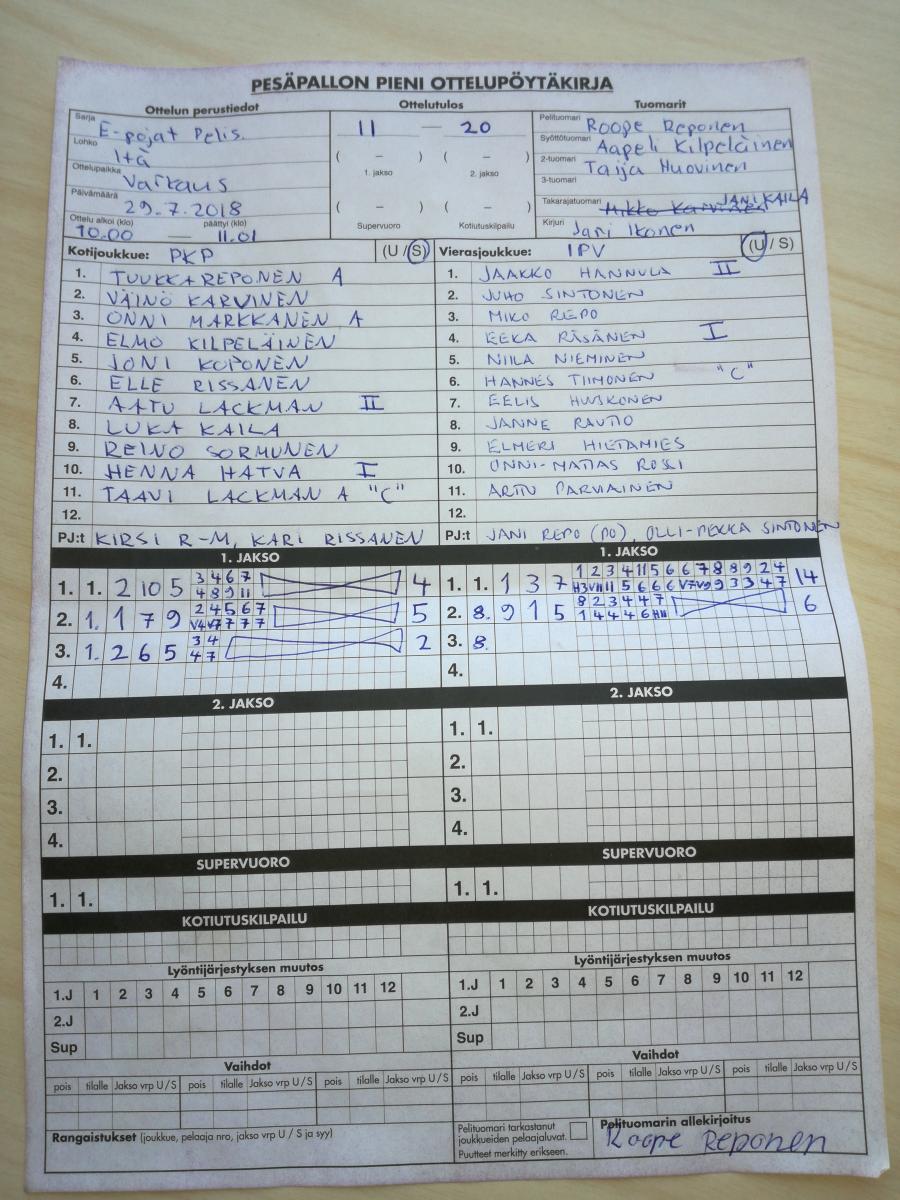 PESÄPALLON PIENI OTTELUPÖYTÄKIRJA
Ottelun perustiedot Ottelutulos Tuomarit
Sarja E-pojat Pelis.
Lohko Itä
Ottelupaikka Varkaus
Päivämäärä 29.7.2018
Ottelu alkoi (klo) päättyi (klo)
10.00 — 11.01
11 — 20
( – ) ( – )
1. jakso 2. jakso
( – ) ( – )
Supervuoro Kotiutuskilpailu
Pelituomari Roope Reponen
Syöttötuomari Aapeli Kilpeläinen
2-tuomari Taija Huovinen
3-tuomari
Takarajatuomari Mikko Karvinen JANI KAILA
Kirjuri Jani Ikonen
Kotijoukkue: PKP (U / S)
1. TUUKKA REPONEN A
2. VÄINÖ KARVINEN
3. ONNI MARKKANEN A
4. ELMO KILPELÄINEN
5. JONI KOPONEN
6. ELLE RISSANEN
7. AATU LACKMAN II
8. LUKA KAILA
9. REINO SORMUNEN
10. HENNA HATVA I
11. TAAVI LACKMAN A "C"
12.
PJ:t KIRSI R-M, KARI RISSANEN
Vierasjoukkue: IPV (U / S)
1. JAAKKO HANNULA II
2. JUHO SINTONEN
3. MIKO REPO
4. EEKA RÄSÄNEN I
5. NIILA NIEMINEN
6. HANNES TIIHONEN "C"
7. EELIS HUISKONEN
8. JANNE RAUTIO
9. ELMERI HIETAMIES
10. ONNI-MATIAS ROSSI
11. ARTTU PARVIAINEN
12.
PJ:t JANI REPO (PO), OLLI-PEKKA SINTONEN
1. JAKSO
1. 1. 2 10 5 3 4 6 7 4
4 8 9 11
2. 1. 1 7 9 2 4 5 6 7 5
V4 V7 7 7 7
3. 1. 2 6 5 3 4 2
4 7
4.
1. JAKSO
1. 1. 1 3 7 1 2 3 4 11 5 6 6 7 8 8 9 2 4 14
2. 8. 9 1 5 8 2 3 4 4 7 6
3. 8.
4.
2. JAKSO
1. 1.
2.
3.
4.
2. JAKSO
1. 1.
2.
3.
4.
SUPERVUORO
1. 1.
SUPERVUORO
1. 1.
KOTIUTUSKILPAILU
KOTIUTUSKILPAILU
Lyöntijärjestyksen muutos
1.J 1 2 3 4 5 6 7 8 9 10 11 12
2.J
Sup
Lyöntijärjestyksen muutos
1.J 1 2 3 4 5 6 7 8 9 10 11 12
2.J
Sup
Vaihdot
pois tilalle Jakso vrp U / S pois tilalle Jakso vrp U / S pois tilalle Jakso vrp U / S
Vaihdot
pois tilalle Jakso vrp U / S pois tilalle Jakso vrp U / S pois tilalle Jakso vrp U / S
Rangaistukset (joukkue, pelaaja nro, jakso vrp U / S ja syy)
Pelituomari tarkastanut
joukkueiden pelaajaluvat.
Puutteet merkitty erikseen.
Pelituomarin allekirjoitus
Roope Reponen